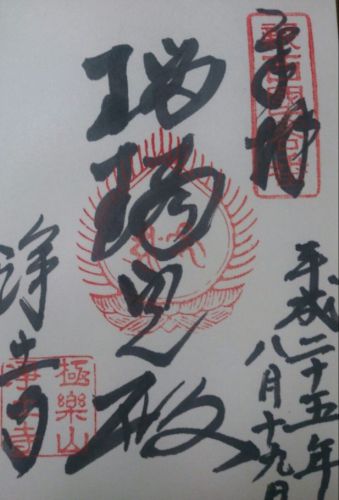 奉拝
平成二十五年
八月十九日
瑠璃光殿
浄土寺
極樂山
浄土寺